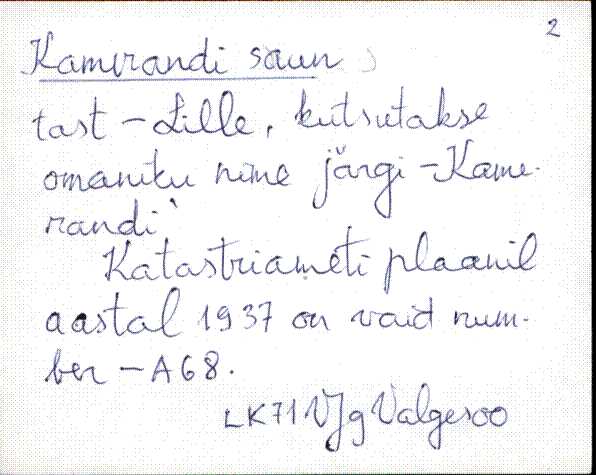 2
Kamerandi saun
tast - Lille, kutsutakse
omaniku nime järgi - Kame-
randi
Katastriameti plaanil
aastal 1937 on vaid num-
ber - A68.
LK71 VJg Valgesoo